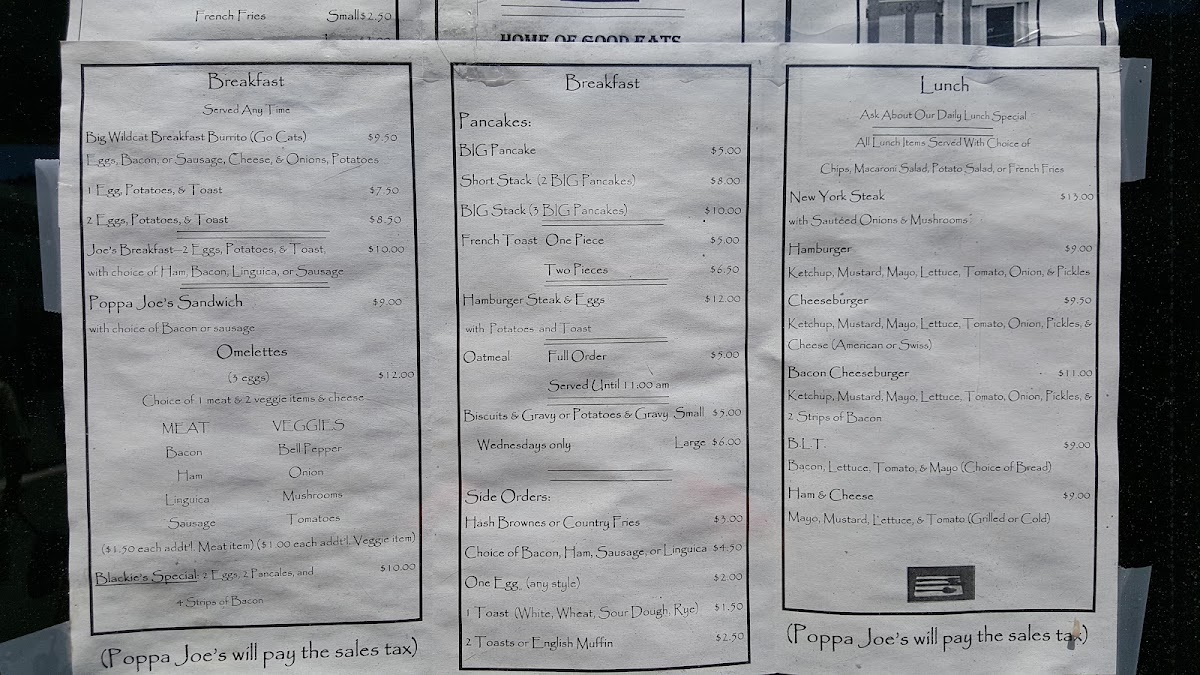 French Fries Small $2.50
HOME OF GOOD EATS
Breakfast
Served Any Time
Big Wildcat Breakfast Burrito (Go Cats) $9.50
Eggs, Bacon, or Sausage, Cheese, & Onions, Potatoes
1 Egg, Potatoes, & Toast $7.50
2 Eggs, Potatoes, & Toast $8.50
Joe's Breakfast—2 Eggs, Potatoes, & Toast, $10.00
with choice of Ham, Bacon, Linguica, or Sausage
Poppa Joe's Sandwich $9.00
with choice of Bacon or sausage
Omelettes
(3 eggs) $12.00
Choice of 1 meat & 2 veggie items & cheese
MEAT VEGGIES
Bacon Bell Pepper
Ham Onion
Linguica Mushrooms
Sausage Tomatoes
($1.50 each addt'l. Meat item) ($1.00 each addt'l. Veggie item)
Blackie's Special: 2 Eggs, 2 Pancales, and $10.00
4 Strips of Bacon
(Poppa Joe's will pay the sales tax)
Breakfast
Pancakes:
BIG Pancake $5.00
Short Stack (2 BIG Pancakes) $8.00
BIG Stack (3 BIG Pancakes) $10.00
French Toast One Piece $5.00
Two Pieces $6.50
Hamburger Steak & Eggs $12.00
with Potatoes and Toast
Oatmeal Full Order $5.00
Served Until 11:00 am
Biscuits & Gravy or Potatoes & Gravy Small $5.00
Wednesdays only Large $6.00
Side Orders:
Hash Brownes or Country Fries $3.00
Choice of Bacon, Ham, Sausage, or Linguica $4.50
One Egg (any style) $2.00
1 Toast (White, Wheat, Sour Dough, Rye) $1.50
2 Toasts or English Muffin $2.50
Lunch
Ask About Our Daily Lunch Special
All Lunch Items Served With Choice of
Chips, Macaroni Salad, Potato Salad, or French Fries
New York Steak $13.00
with Sautéed Onions & Mushrooms
Hamburger $9.00
Ketchup, Mustard, Mayo, Lettuce, Tomato, Onion, & Pickles
Cheeseburger $9.50
Ketchup, Mustard, Mayo, Lettuce, Tomato, Onion, Pickles, &
Cheese (American or Swiss)
Bacon Cheeseburger $11.00
Ketchup, Mustard, Mayo, Lettuce, Tomato, Onion, Pickles, &
2 Strips of Bacon
B.L.T. $9.00
Bacon, Lettuce, Tomato, & Mayo (Choice of Bread)
Ham & Cheese $9.00
Mayo, Mustard, Lettuce, & Tomato (Grilled or Cold)
(Poppa Joe's will pay the sales tax)